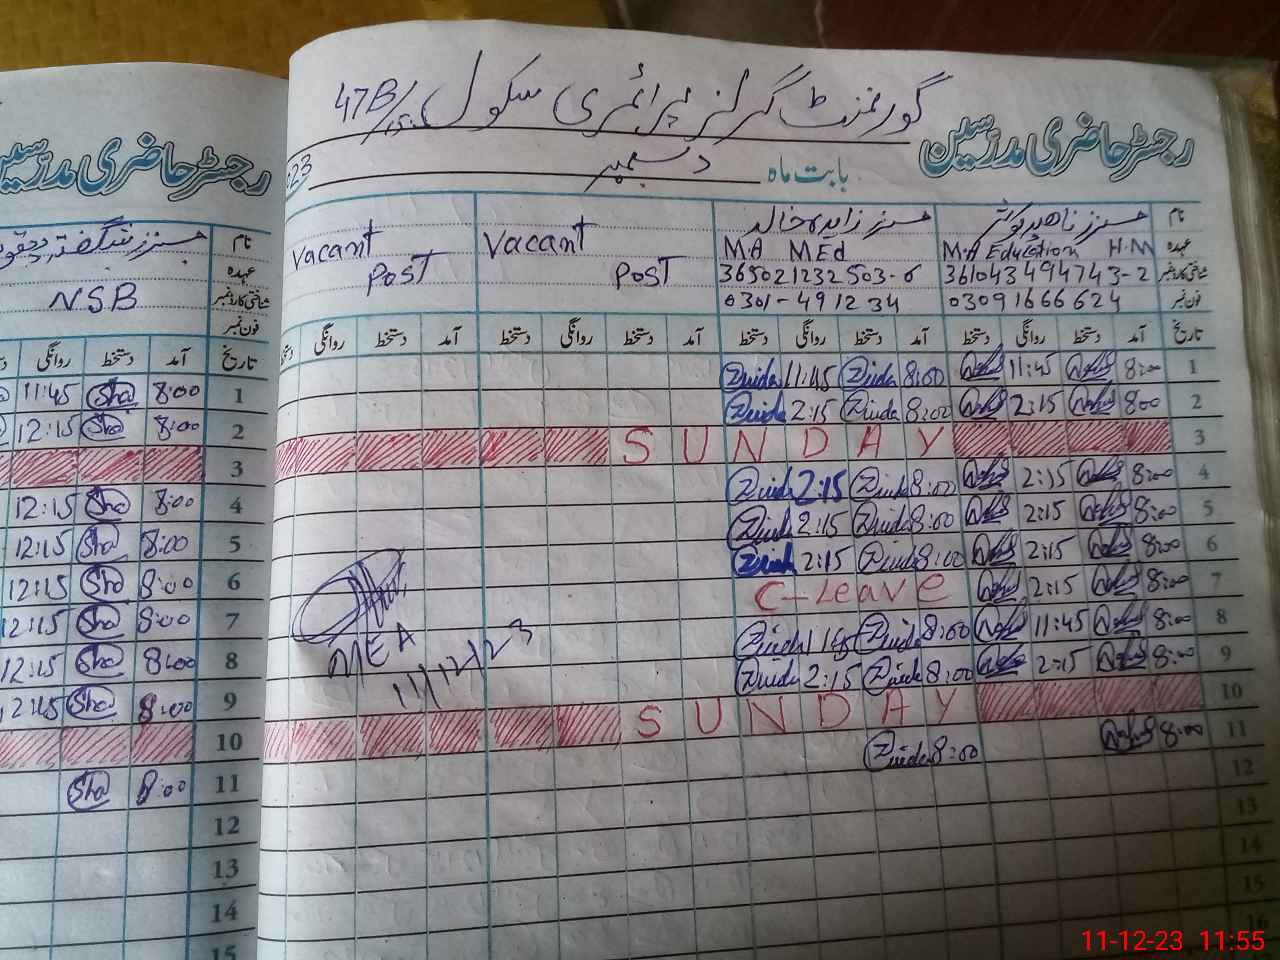 گورنمنٹ گرلز پرائمری سکول 47B/15.L
رجسٹر حاضری مدرسین
بابت ماہ دسمبر 23
نام مسز ناھید کوثر مسز زاہدہ خالد Vacant Post Vacant Post
عہدہ M.A Education H.M M.A MEd
شناختی کارڈ نمبر 361043494743-2 365021232503-6
فون نمبر 03091666624 0301-491234
تاریخ آمد دستخط روانگی دستخط آمد دستخط روانگی دستخط آمد دستخط روانگی دستخط آمد دستخط روانگی دستخط
1 8:00 11:45 8:00 Zuida 11:45 Zuida
2 8:00 2:15 8:00 Zuida 2:15 Zuida
3 SUNDAY
4 8:00 2:15 8:00 Zuida 2:15 Zuida
5 8:00 2:15 8:00 Zuida 2:15 Zuida
6 8:00 2:15 8:00 Zuida 2:15 Zuida
7 8:00 2:15 C-Leave
8 8:00 11:45 8:00 Zuida Zuida
9 8:00 2:15 8:00 Zuida 2:15 Zuida
10 SUNDAY
11 8:00 8:00 Zuida
12
13
14
15
16
MEA
11/12/23
رجسٹر حاضری مدرسین
نام مسز شگفتہ
عہدہ
شناختی کارڈ نمبر NSB
فون نمبر
تاریخ آمد دستخط روانگی
1 8:00 Sha 11:45
2 8:00 Sha 12:15
3
4 8:00 Sha 12:15
5 8:00 Sha 12:15
6 8:00 Sha 12:15
7 8:00 Sha 12:15
8 8:00 Sha 12:15
9 8:00 Sha 12:15
10
11 8:00 Sha
12
13
14
15
11-12-23 11:55